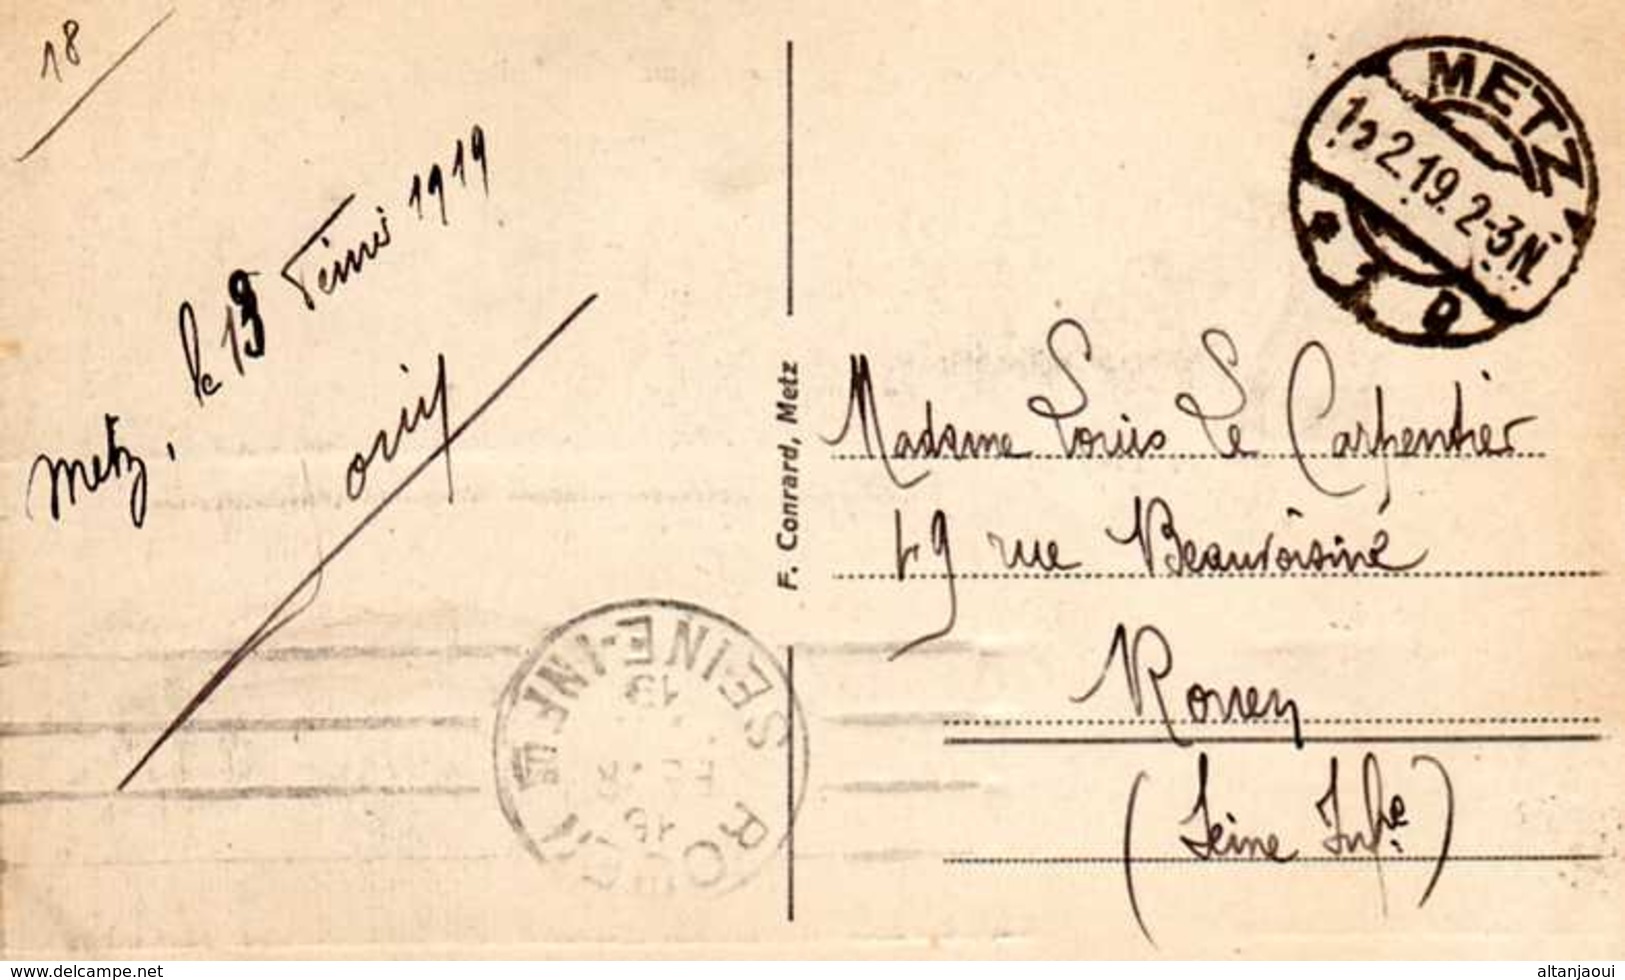 18
Metz, le 13 Février 1919
Louis
F. Conrard, Metz
METZ
2.19. 2-3N.
Madame Louis Le Carpentier
49 rue Beauvoisine
Rouen
(Seine Infre)
ROUEN
SEINE-INFRE
16
19
www.delcampe.net
altanjaoui